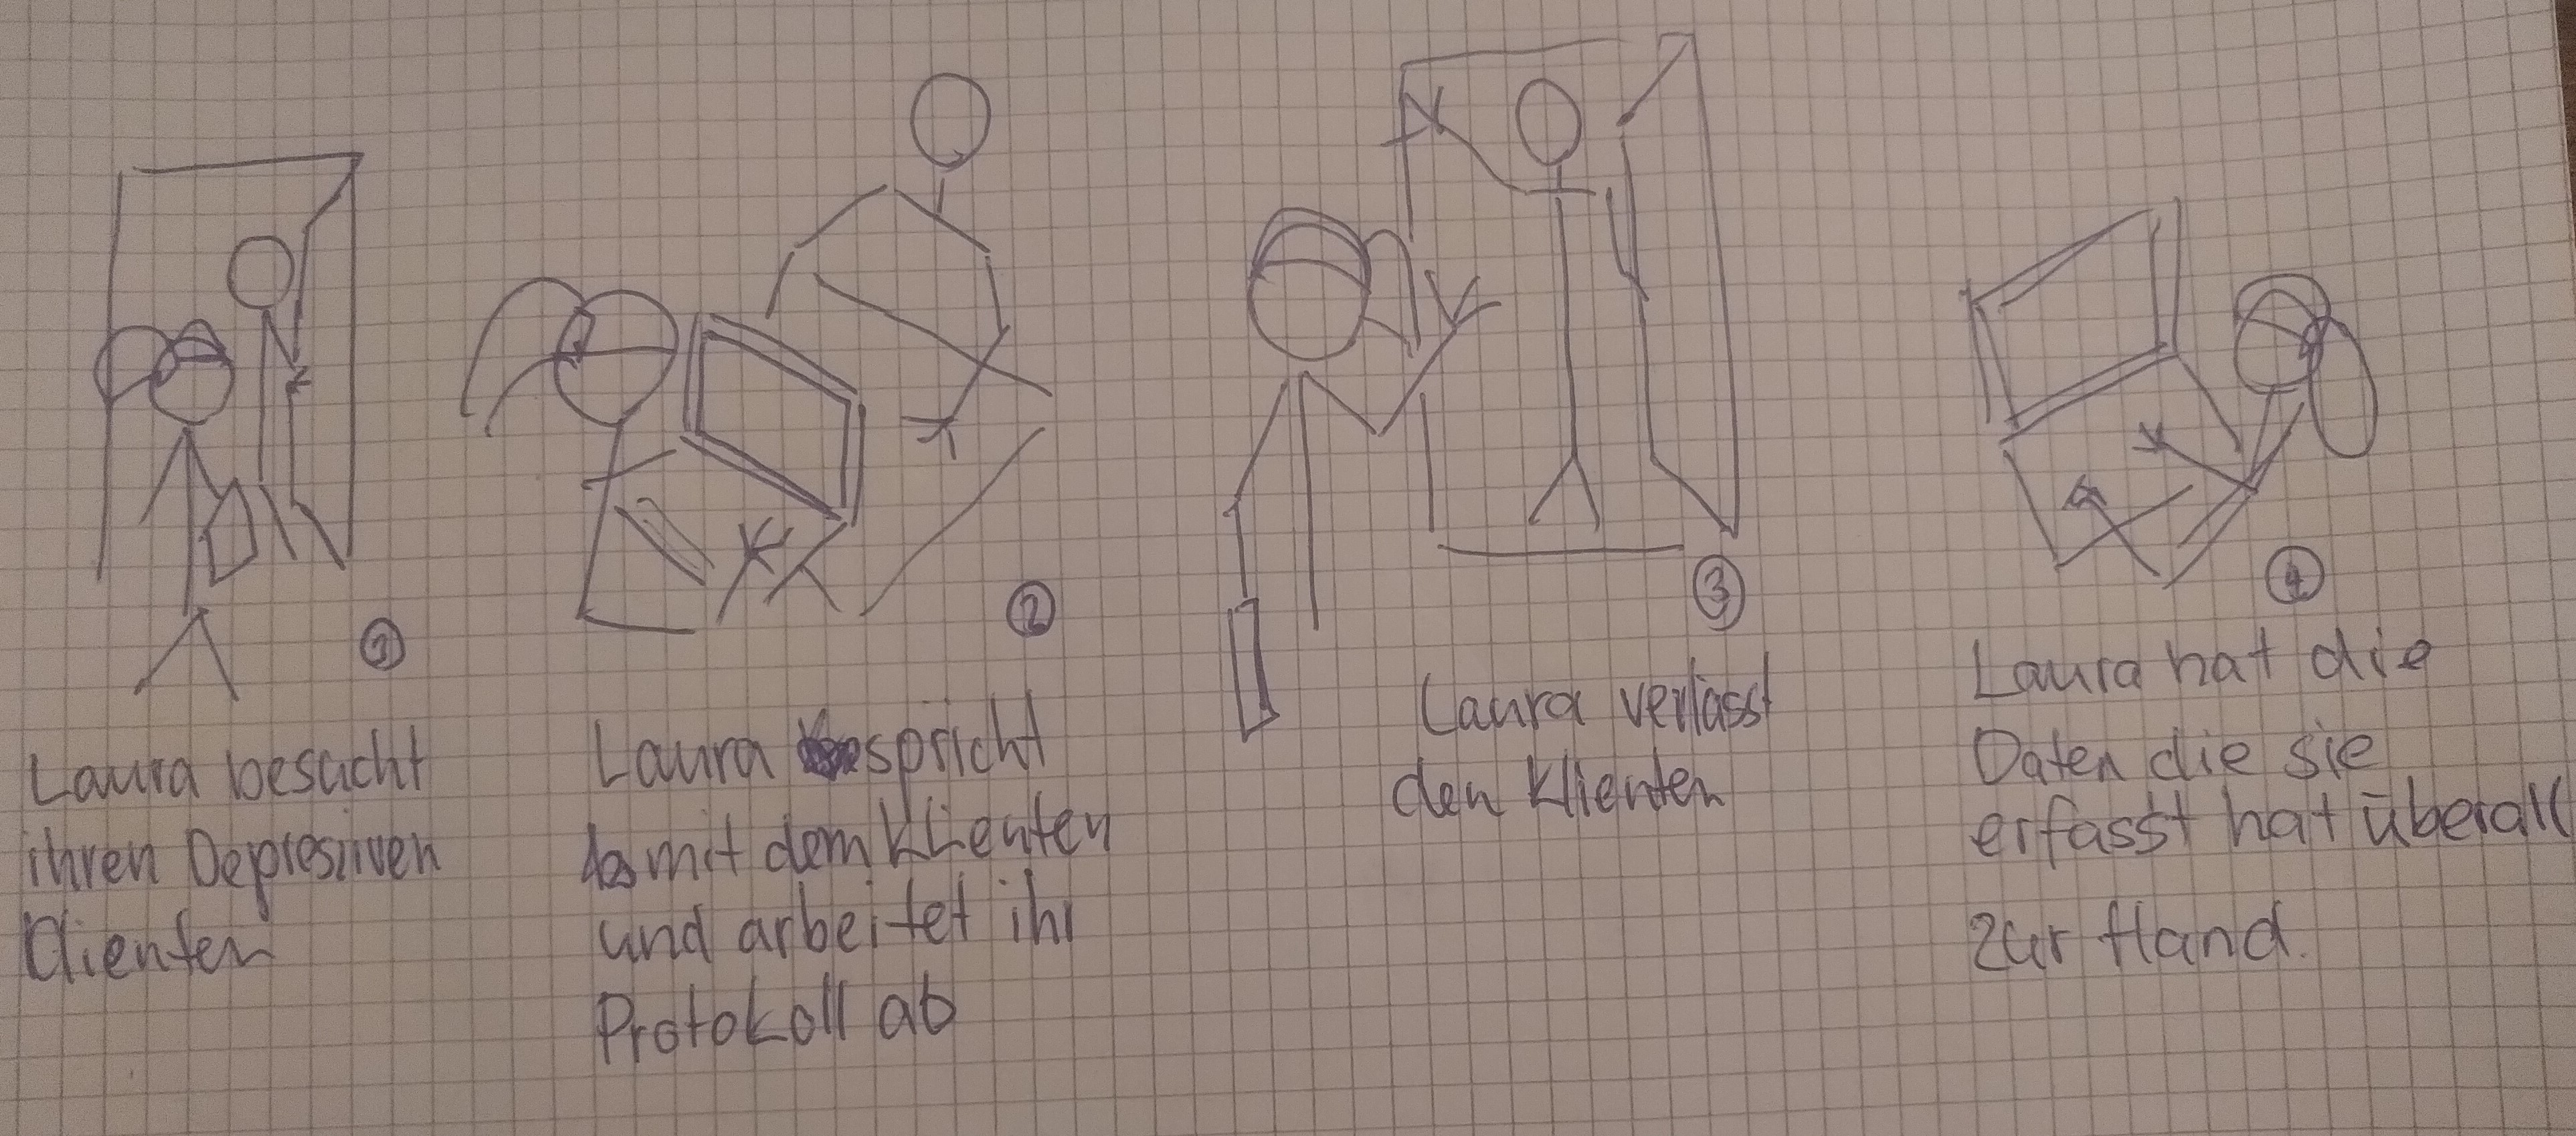 1
Laura besucht
ihren Depressiven
Clienten
2
Laura spricht
mit dem Klienten
und arbeitet ihr
Protokoll ab
3
Laura verlässt
den Klienten
4
Laura hat die
Daten die sie
erfasst hat überall
zur Hand.